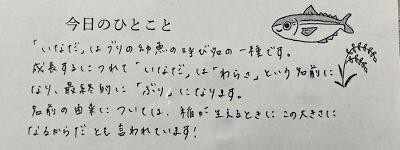 今日のひとこと
「いなだ」はブリの幼魚の呼び名の一種です。
成長するにつれて「いなだ」は「わらさ」という名前に
なり、最終的に「ぶり」になります。
名前の由来については、稲が生えるときにこの大きさに
なるからだとも言われています!